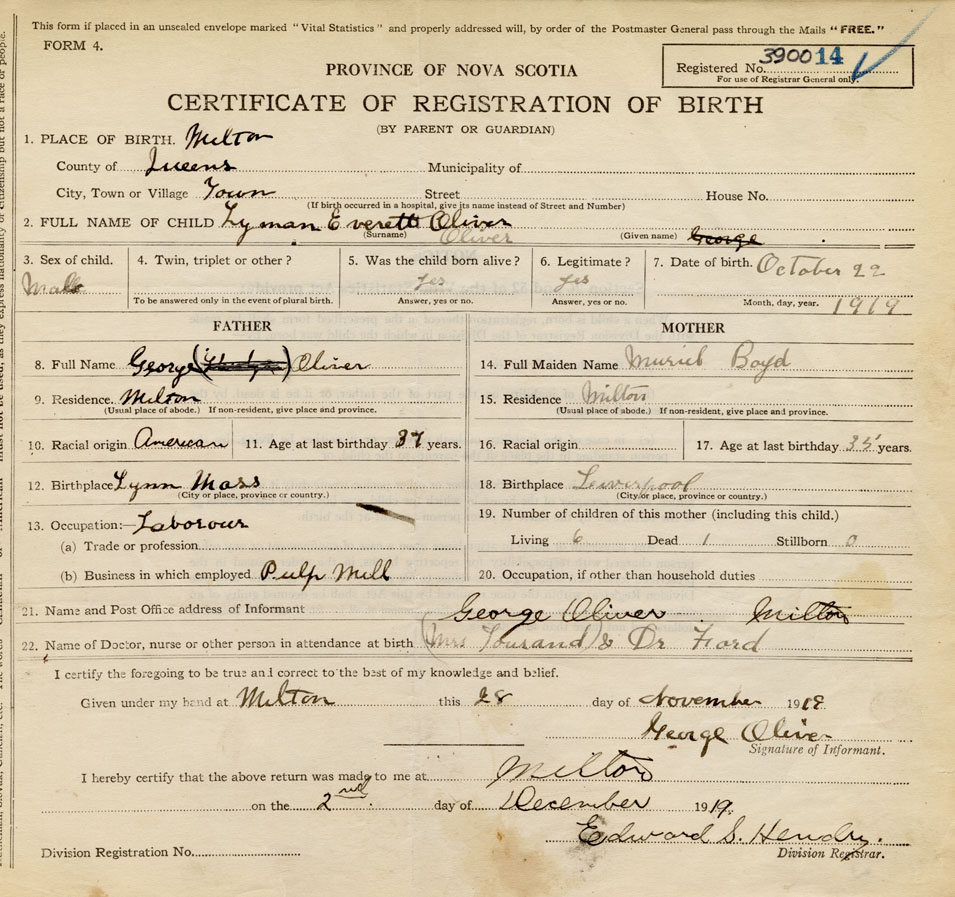 This form if placed in an unsealed envelope marked "Vital Statistics" and properly addressed will, by order of the Postmaster General pass through the Mails "FREE."
FORM 4.
Registered No. 390014
For use of Registrar General only.
PROVINCE OF NOVA SCOTIA
CERTIFICATE OF REGISTRATION OF BIRTH
(BY PARENT OR GUARDIAN)
1. PLACE OF BIRTH. Milton
County of Queens Municipality of
City, Town or Village Town Street House No.
(If birth occurred in a hospital, give its name instead of Street and Number)
2. FULL NAME OF CHILD Lyman Everett Oliver
(Surname) Oliver (Given name) George
3. Sex of child. Male
4. Twin, triplet or other?
To be answered only in the event of plural birth.
5. Was the child born alive? yes
Answer, yes or no.
6. Legitimate? yes
Answer, yes or no.
7. Date of birth. October 22
Month, day, year. 1919
FATHER
8. Full Name George Oliver
9. Residence. Milton
(Usual place of abode.) If non-resident, give place and province.
10. Racial origin American 11. Age at last birthday 37 years.
12. Birthplace Lynn Mass
(City or place, province or country.)
13. Occupation:— Laborour
(a) Trade or profession
(b) Business in which employed Pulp Mill
MOTHER
14. Full Maiden Name Muriel Boyd
15. Residence Milton
(Usual place of abode.) If non-resident, give place and province.
16. Racial origin 17. Age at last birthday 35 years.
18. Birthplace Liverpool
(City or place, province or country.)
19. Number of children of this mother (including this child.)
Living 6 Dead 1 Stillborn 0
20. Occupation, if other than household duties
21. Name and Post Office address of Informant George Oliver Milton
22. Name of Doctor, nurse or other person in attendance at birth (Mrs ) & Dr Ford
I certify the foregoing to be true and correct to the best of my knowledge and belief.
Given under my hand at Milton this 28 day of November 191
George Oliver
Signature of Informant.
I hereby certify that the above return was made to me at Milton
on the 2nd. day of December 1919.
Edward S. Hendry.
Division Registrar.
Division Registration No.